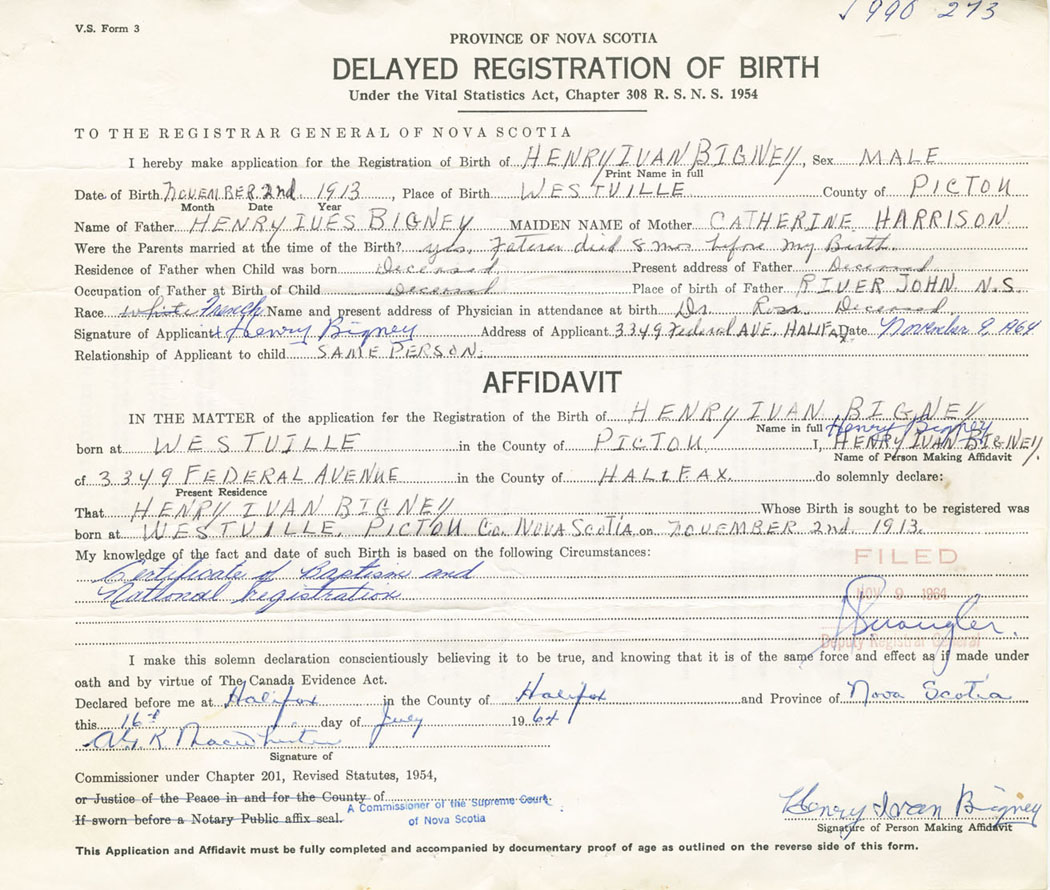 V.S. Form 3
1990 273
PROVINCE OF NOVA SCOTIA
DELAYED REGISTRATION OF BIRTH
Under the Vital Statistics Act, Chapter 308 R. S. N. S. 1954
TO THE REGISTRAR GENERAL OF NOVA SCOTIA
I hereby make application for the Registration of Birth of HENRY IVAN BIGNEY, Sex MALE
Print Name in full
Date of Birth NOVEMBER 2nd 1913, Place of Birth WESTVILLE County of PICTOU
Month Date Year
Name of Father HENRY IVES BIGNEY MAIDEN NAME of Mother CATHERINE HARRISON
Were the Parents married at the time of the Birth? yes, Father died 8 mos before my Birth.
Residence of Father when Child was born Deceased, Present address of Father Deceased
Occupation of Father at Birth of Child deceased Place of birth of Father RIVER JOHN N.S.
Race white French Name and present address of Physician in attendance at birth Dr. Ross. Deceased,
Signature of Applicant Henry Bigney Address of Applicant 3349 Federal AVE, HALIFAX Date November 9, 1964
Relationship of Applicant to child SAME PERSON.
AFFIDAVIT
IN THE MATTER of the application for the Registration of the Birth of HENRY IVAN BIGNEY
Name in full Henry Bigney
born at WESTVILLE in the County of PICTOU I, HENRY IVAN BIGNEY,
Name of Person Making Affidavit
of 3349 FEDERAL AVENUE in the County of HALIFAX. do solemnly declare:
Present Residence
That HENRY IVAN BIGNEY Whose Birth is sought to be registered was
born at WESTVILLE, PICTOU Co. NOVA SCOTIA, on NOVEMBER 2nd 1913.
My knowledge of the fact and date of such Birth is based on the following Circumstances:
Certificate of Baptism and
National registration
FILED
NOV 9 1964
Deputy Registrar General
I make this solemn declaration conscientiously believing it to be true, and knowing that it is of the same force and effect as if made under
oath and by virtue of The Canada Evidence Act.
Declared before me at Halifax in the County of Halifax and Province of Nova Scotia
this 16th day of July 1964
Signature of
Commissioner under Chapter 201, Revised Statutes, 1954,
or Justice of the Peace in and for the County of
A Commissioner of the Supreme Court
If sworn before a Notary Public affix seal.
of Nova Scotia
Henry Ivan Bigney
Signature of Person Making Affidavit
This Application and Affidavit must be fully completed and accompanied by documentary proof of age as outlined on the reverse side of this form.